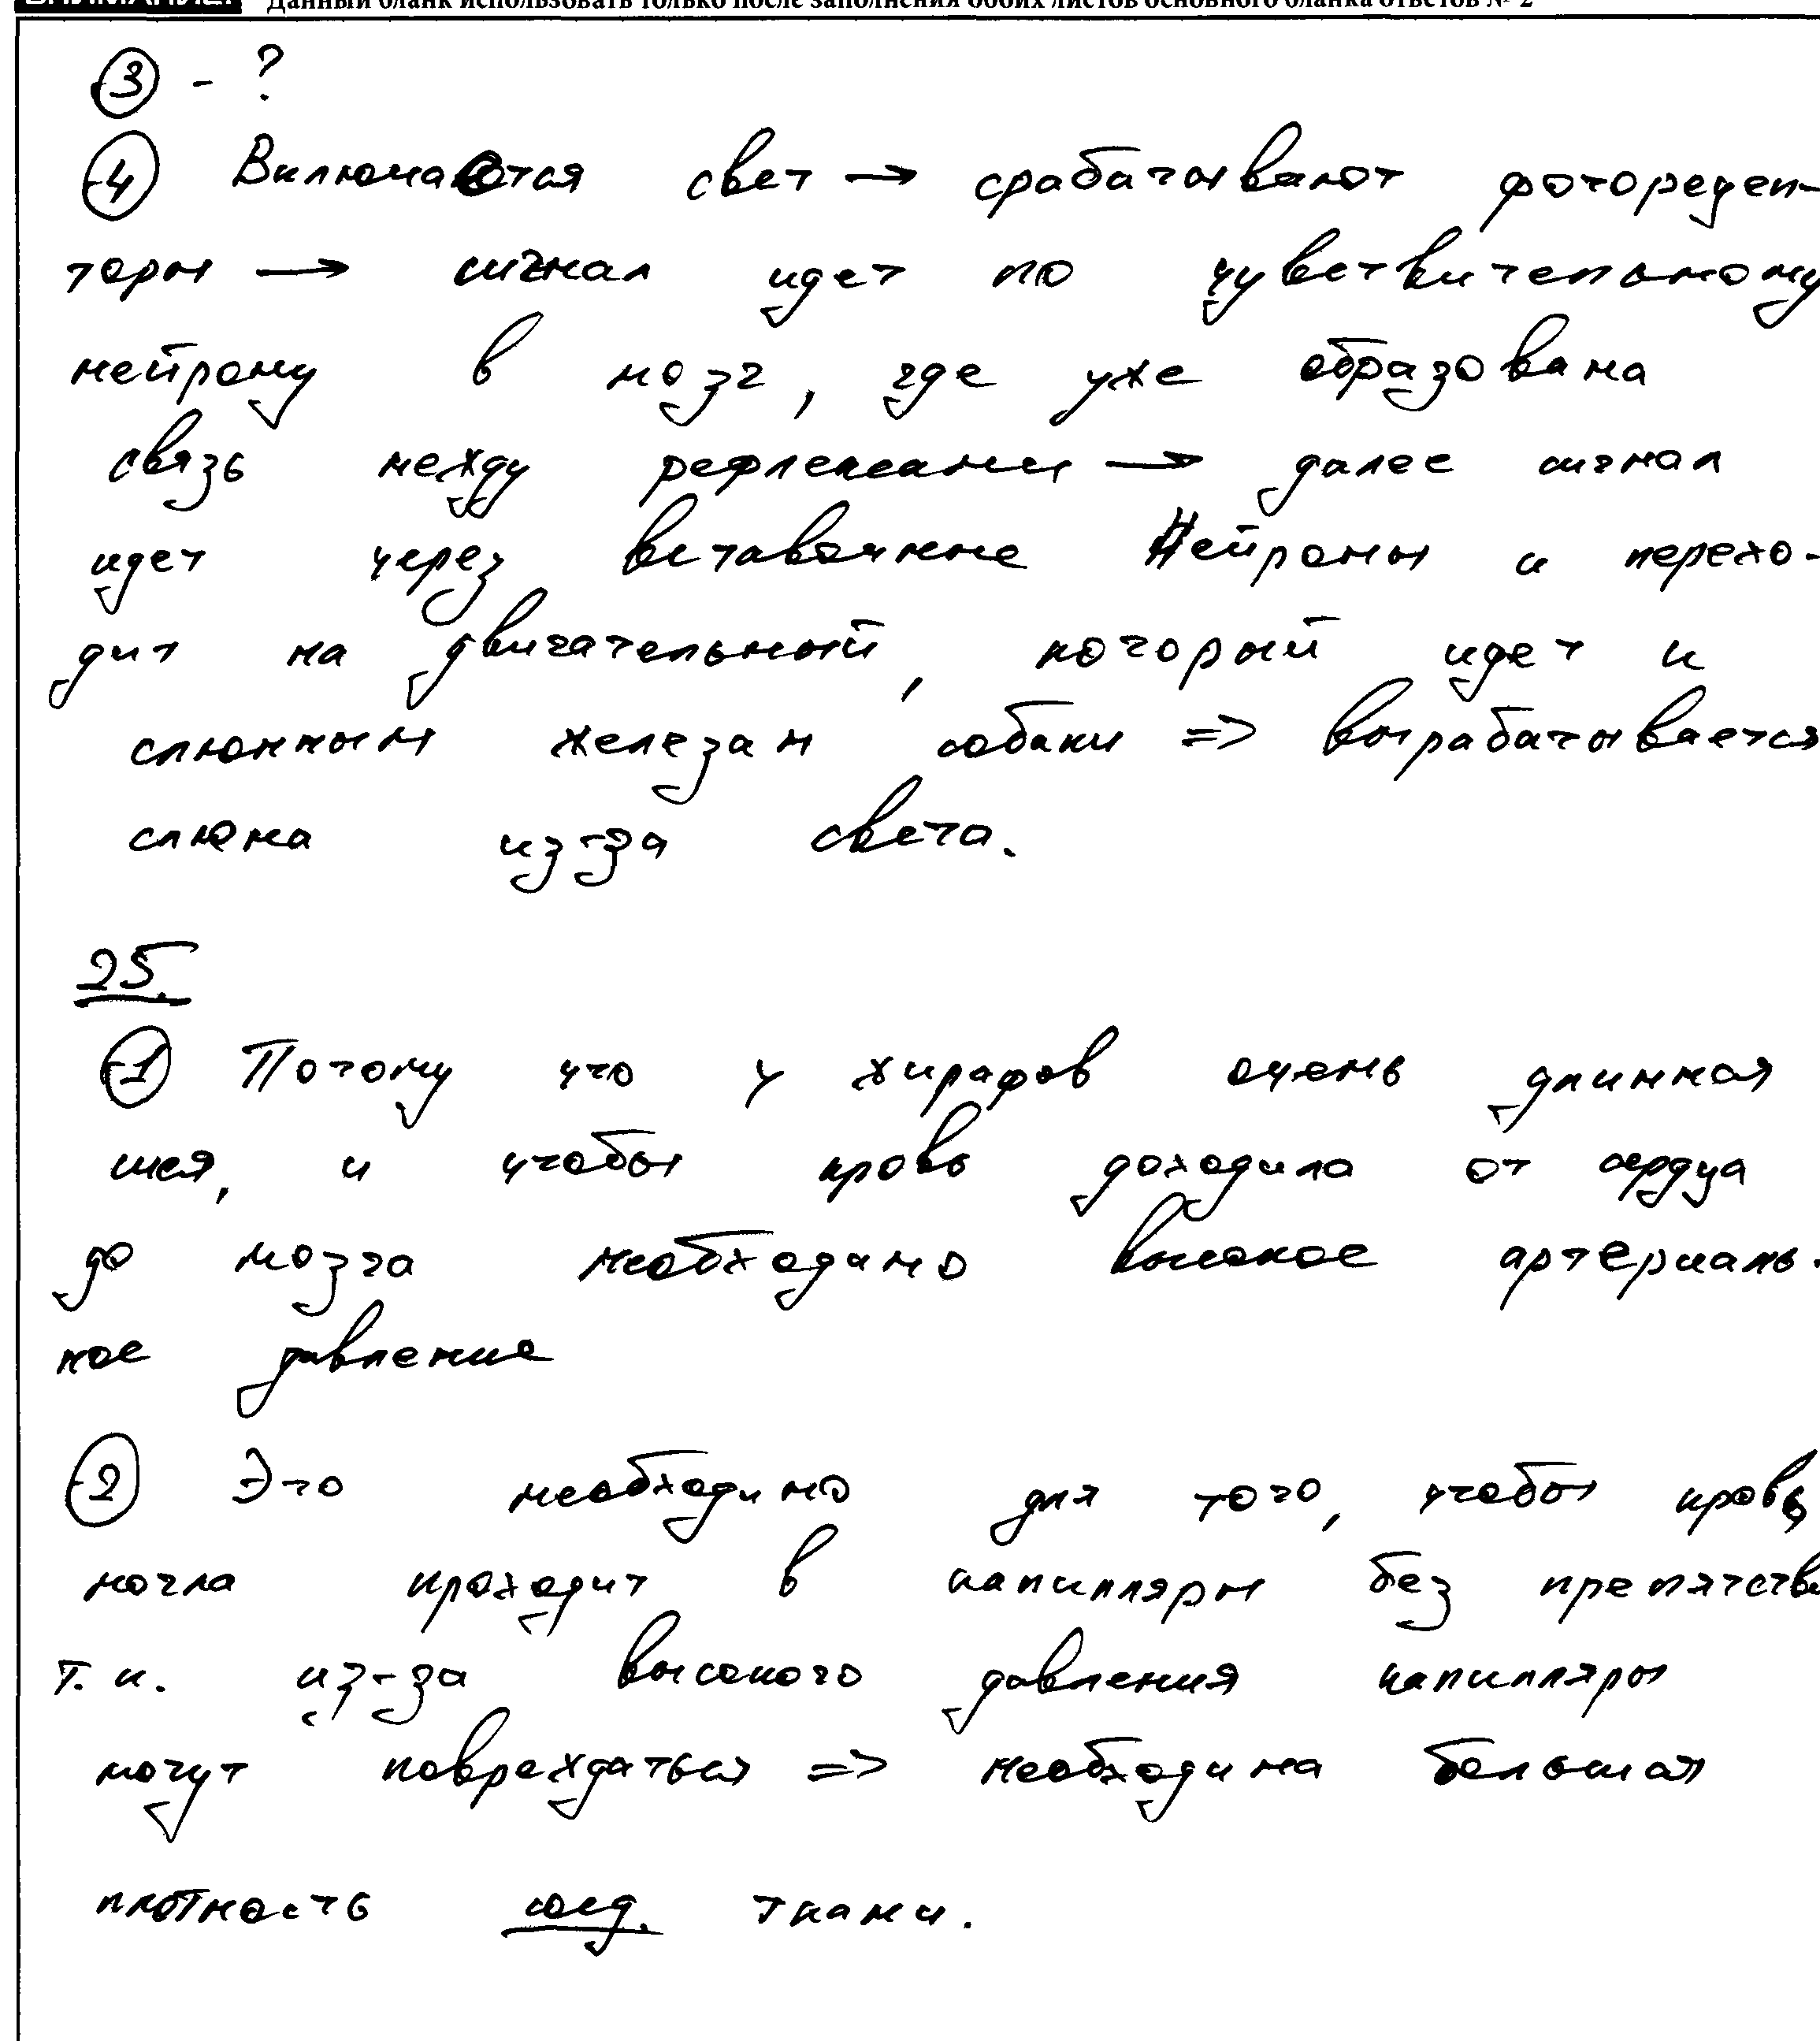 Данный бланк использовать только после заполнения обоих листов основного бланка ответов № 2
3 - ?
4 Включается свет → срабатывают фоторецеп-
торы → сигнал идет по чувствительному
нейрону в мозг, где уже образована
связь между рефлексами → далее сигнал
идет через вставочные нейроны и перехо-
дит на двигательный, который идет к
слюнным железам собаки => вырабатывается
слюна из-за света.
25.
1 Потому что у жирафов очень длинная
шея, и чтобы кровь доходила от сердца
до мозга необходимо высокое артериаль-
ное давление
2 Это необходимо для того, чтобы кровь
могла проходит в капилляры без препятстви
т.к. из-за высокого давления капилляры
могут повреждаться => необходима большая
плотность соед. ткани.